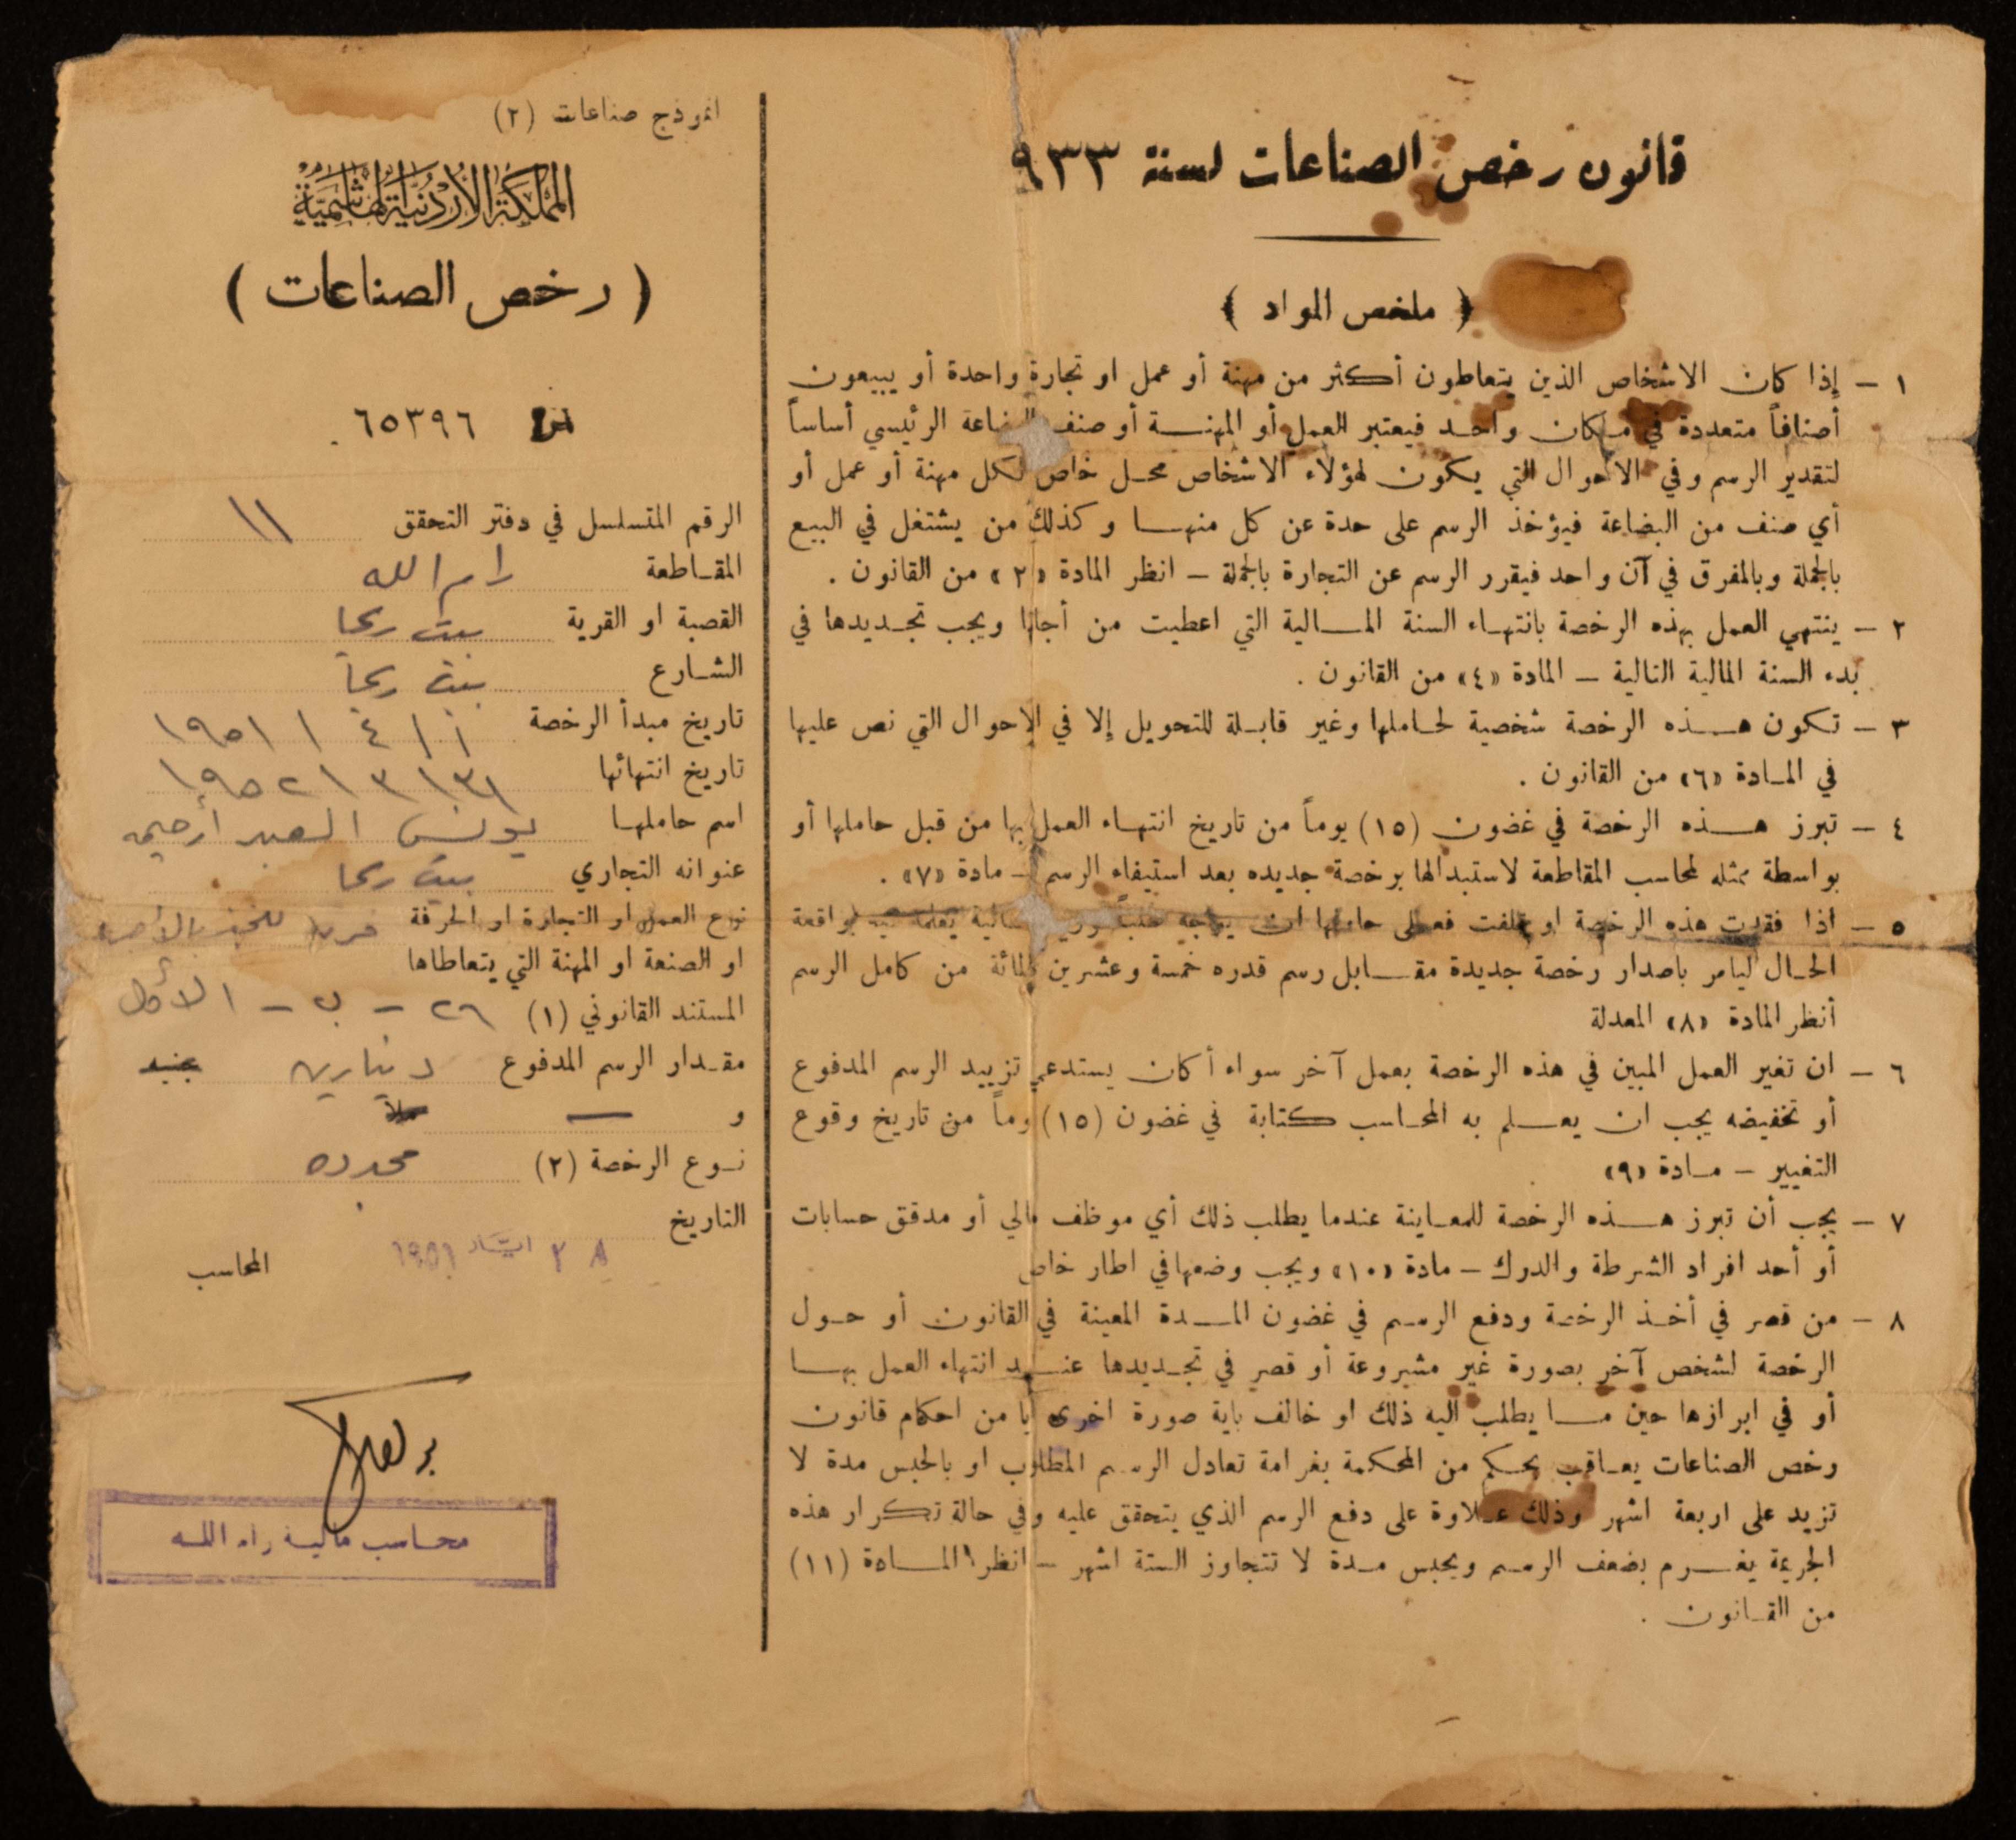 قانون رخص الصناعات لسنة ٩٣٣
﴿ ملخص المواد ﴾
١ – إذا كان الاشخاص الذين يتعاطون أكثر من مهنة أو عمل او تجارة واحدة أو يبيعون
أصنافاً متعددة في مكان واحد فيعتبر العمل أو المهنة أو صنف البضاعة الرئيسي أساساً
لتقدير الرسم وفي الاحوال التي يكون لهؤلاء الاشخاص محل خاص لكل مهنة أو عمل أو
أي صنف من البضاعة فيؤخذ الرسم على حدة عن كل منها وكذلك من يشتغل في البيع
بالجملة وبالمفرق في آن واحد فيقرر الرسم عن التجارة بالجملة – انظر المادة «٢» من القانون .
٢ – ينتهي العمل بهذه الرخصة بانتهاء السنة المالية التي اعطيت من أجلها ويجب تجديدها في
بدء السنة المالية التالية – المادة «٤» من القانون .
٣ – تكون هذه الرخصة شخصية لحاملها وغير قابلة للتحويل إلا في الاحوال التي نص عليها
في المادة «٦» من القانون .
٤ – تبرز هذه الرخصة في غضون (١٥) يوماً من تاريخ انتهاء العمل بها من قبل حاملها أو
بواسطة ممثله لمحاسب المقاطعة لاستبدالها برخصة جديده بعد استيفاء الرسم – مادة «٧» .
٥ – اذا فقدت هذه الرخصة او تلفت فعلى حاملها ان يواجه بواقعة
الحال ليامر باصدار رخصة جديدة مقابل رسم قدره خمسة وعشرين بالمائة من كامل الرسم
أنظر المادة «٨» المعدلة
٦ – ان تغير العمل المبين في هذه الرخصة بعمل آخر سواء أكان يستدعي تزييد الرسم المدفوع
أو تخفيضه يجب ان يعلم به المحاسب كتابة في غضون (١٥) يوماً من تاريخ وقوع
التغيير – مادة «٩»
٧ – يجب أن تبرز هذه الرخصة للمعاينة عندما يطلب ذلك أي موظف مالي أو مدقق حسابات
أو أحد افراد الشرطة والدرك – مادة «١٠» ويجب وضعها في اطار خاص
٨ – من قصر في أخذ الرخصة ودفع الرسم في غضون المدة المعينة في القانون أو حول
الرخصة لشخص آخر بصورة غير مشروعة أو قصر في تجديدها عند انتهاء العمل بها
أو في ابرازها حين ما يطلب اليه ذلك او خالف باية صورة اخرى ايا من احكام قانون
رخص الصناعات يعاقب بحكم من المحكمة بغرامة تعادل الرسم المطلوب او بالحبس مدة لا
تزيد على اربعة اشهر وذلك علاوة على دفع الرسم الذي يتحقق عليه وفي حالة تكرار هذه
الجريمة يغرم بضعف الرسم ويحبس مدة لا تتجاوز الستة اشهر – انظر المادة (١١)
من القانون .
انموذج صناعات (٢)
المملكة الأردنية الهاشمية
( رخص الصناعات )
٦٥٣٩٦
الرقم المتسلسل في دفتر التحقق ١١
المقاطعة رام الله
القصبة او القرية بيت ريما
الشارع بيت ريما
تاريخ مبدأ الرخصة ١ / ٤ / ١٩٥١
تاريخ انتهائها ٣١ / ٣ / ١٩٥٢
اسم حاملها يونس العبد ارحيمه
عنوانه التجاري بيت ريما
نوع العمل او التجارة او الحرفة فرن للخبز بالأجره
او الصنعة او المهنة التي يتعاطاها
المستند القانوني (١) ٢٦ – ب – الأول
مقدار الرسم المدفوع دينارين جنيه
و — ملا
نوع الرخصة (٢) مجدده
التاريخ
٢٨ ايار ١٩٥١
المحاسب
محاسب مالية رام الله